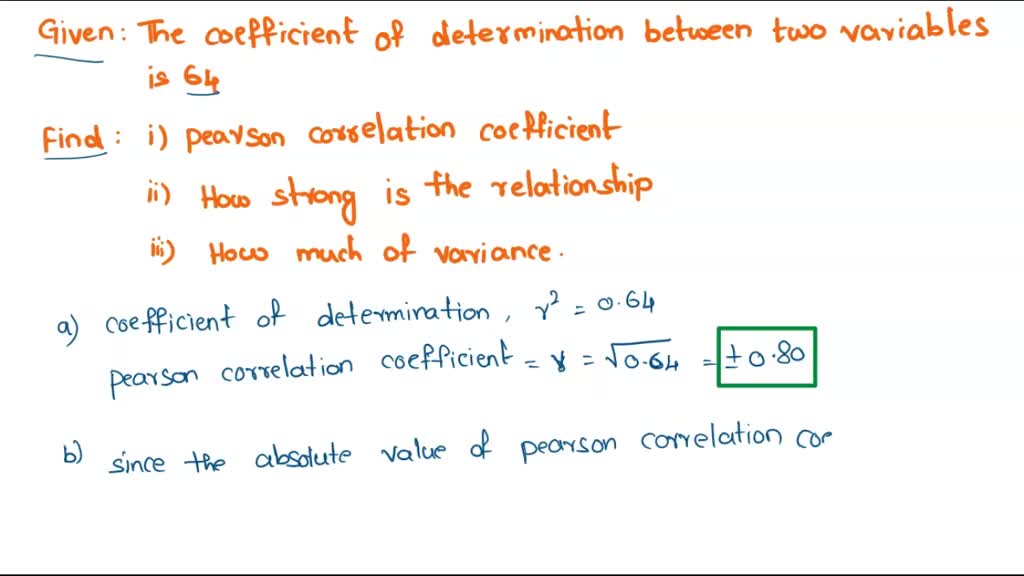 Given: The coefficient of determination between two variables
is 64
Find: i) pearson correlation coefficient
ii) How strong is the relationship
iii) How much of variance.
a) coefficient of determination, r² = 0.64
pearson correlation coefficient = r = √0.64 = ±0.80
b) since the absolute value of pearson correlation coe